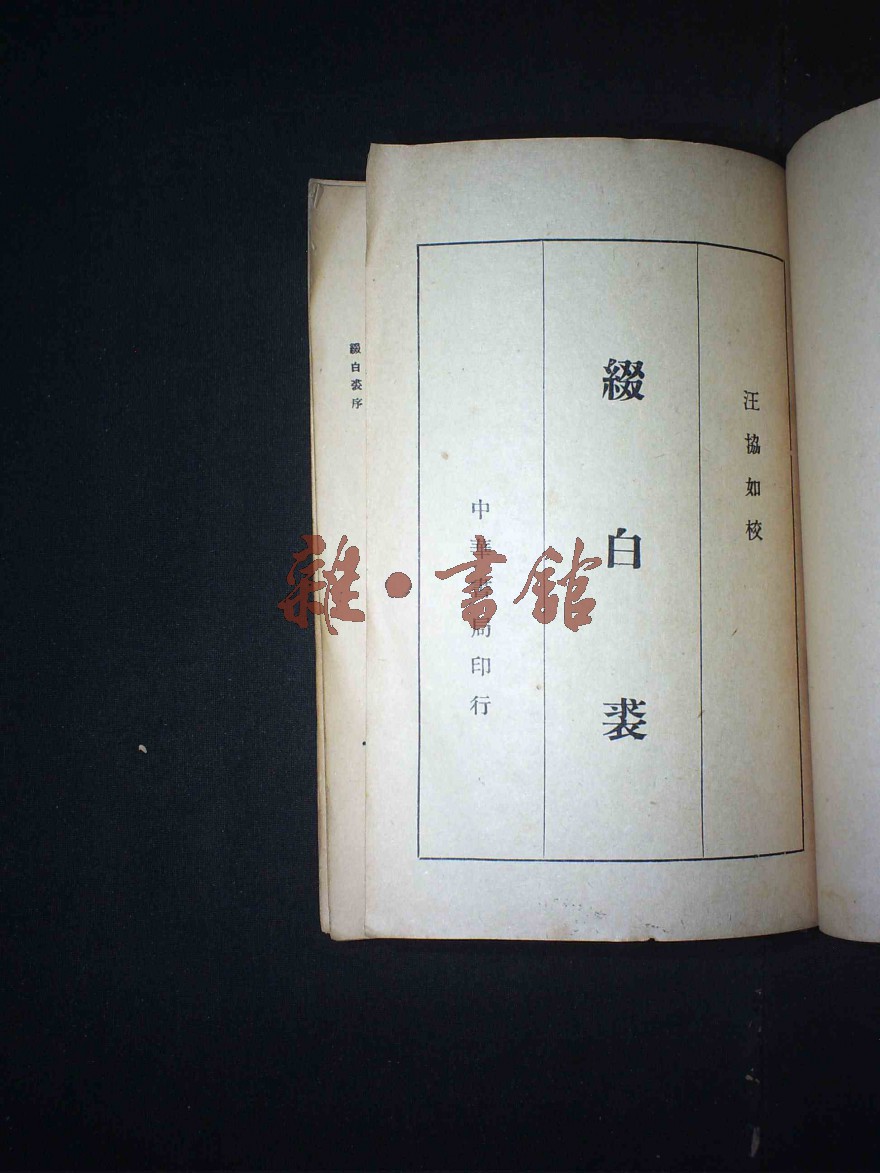 汪協如校
綴白裘
中華書局印行
綴白裘序
雜·書館